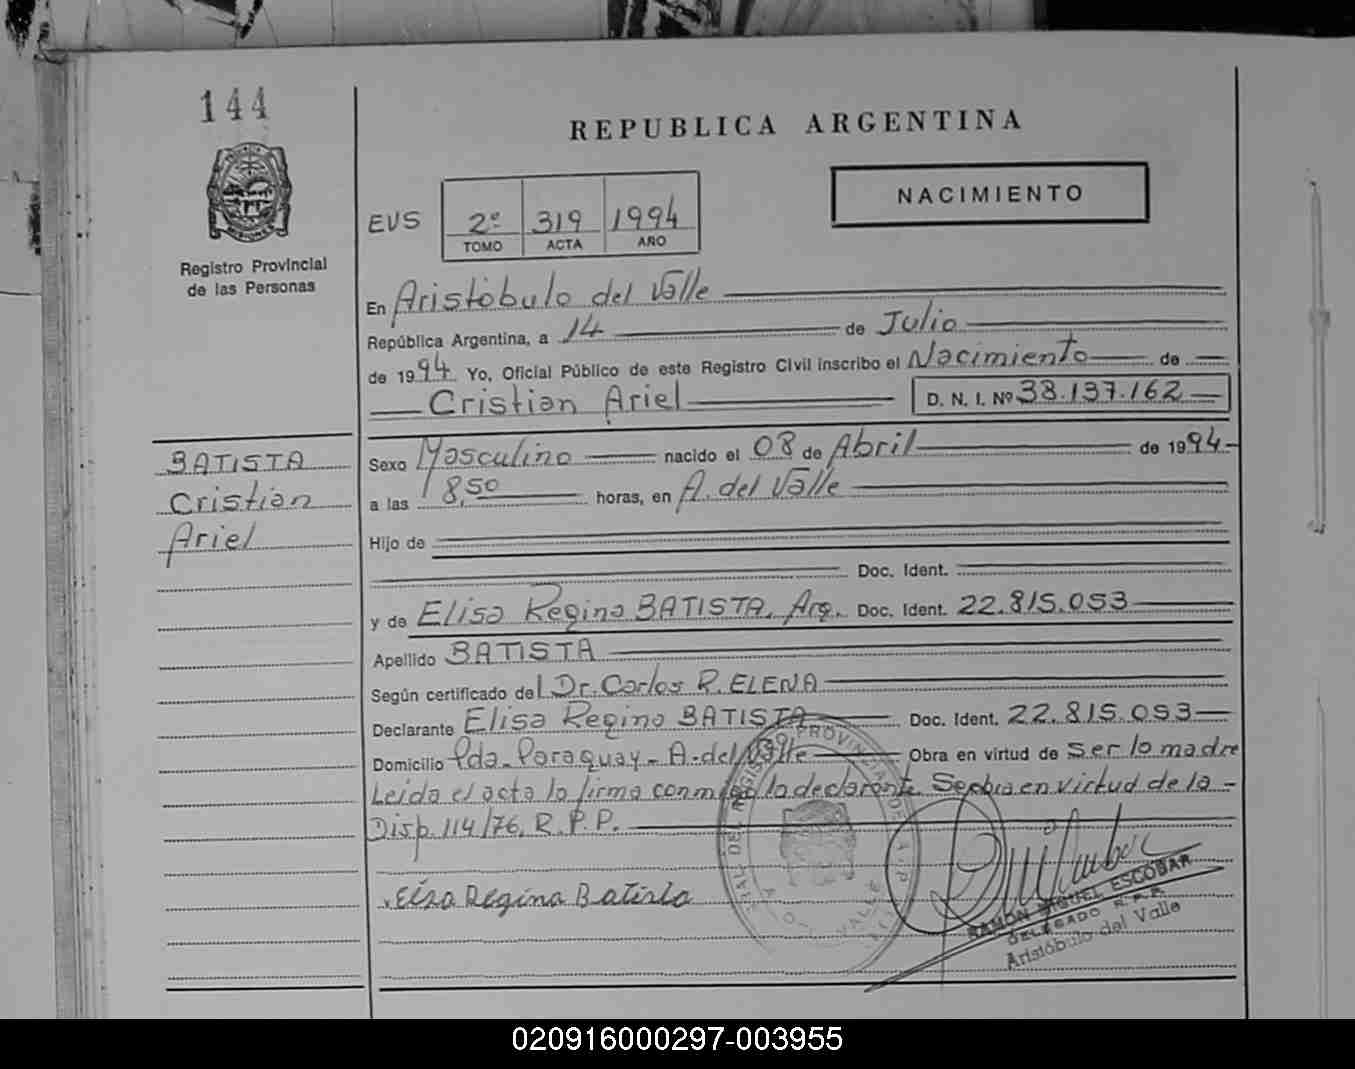 144
REPUBLICA ARGENTINA
NACIMIENTO
MISIONES
Registro Provincial
de las Personas
EVS 2º 319 1994
TOMO ACTA AÑO
En Aristóbulo del Valle
República Argentina, a 14 de Julio
de 1994 Yo, Oficial Público de este Registro Civil inscribo el Nacimiento de
Cristian Ariel D. N. I. Nº 38.137.162
BATISTA
Cristian
Ariel
Sexo Masculino nacido el 08 de Abril de 1994
a las 8,50 horas, en A. del Valle
Hijo de
Doc. Ident.
y de Elisa Regina BATISTA, Arg. Doc. Ident. 22.815.053
Apellido BATISTA
Según certificado del Dr. Carlos R. ELENA
Declarante Elisa Regina BATISTA Doc. Ident. 22.815.053
Domicilio Pda. Paraguay - A. del Valle Obra en virtud de ser la madre
Leida el acta la firma conmigo la declarante. Se en virtud de la
Disp. 114/76, R.P.P.
Elsa Regina Batista
RAMÓN MIGUEL ESCOBAR
DELEGADO R.P.P.
Aristóbulo del Valle
020916000297-003955